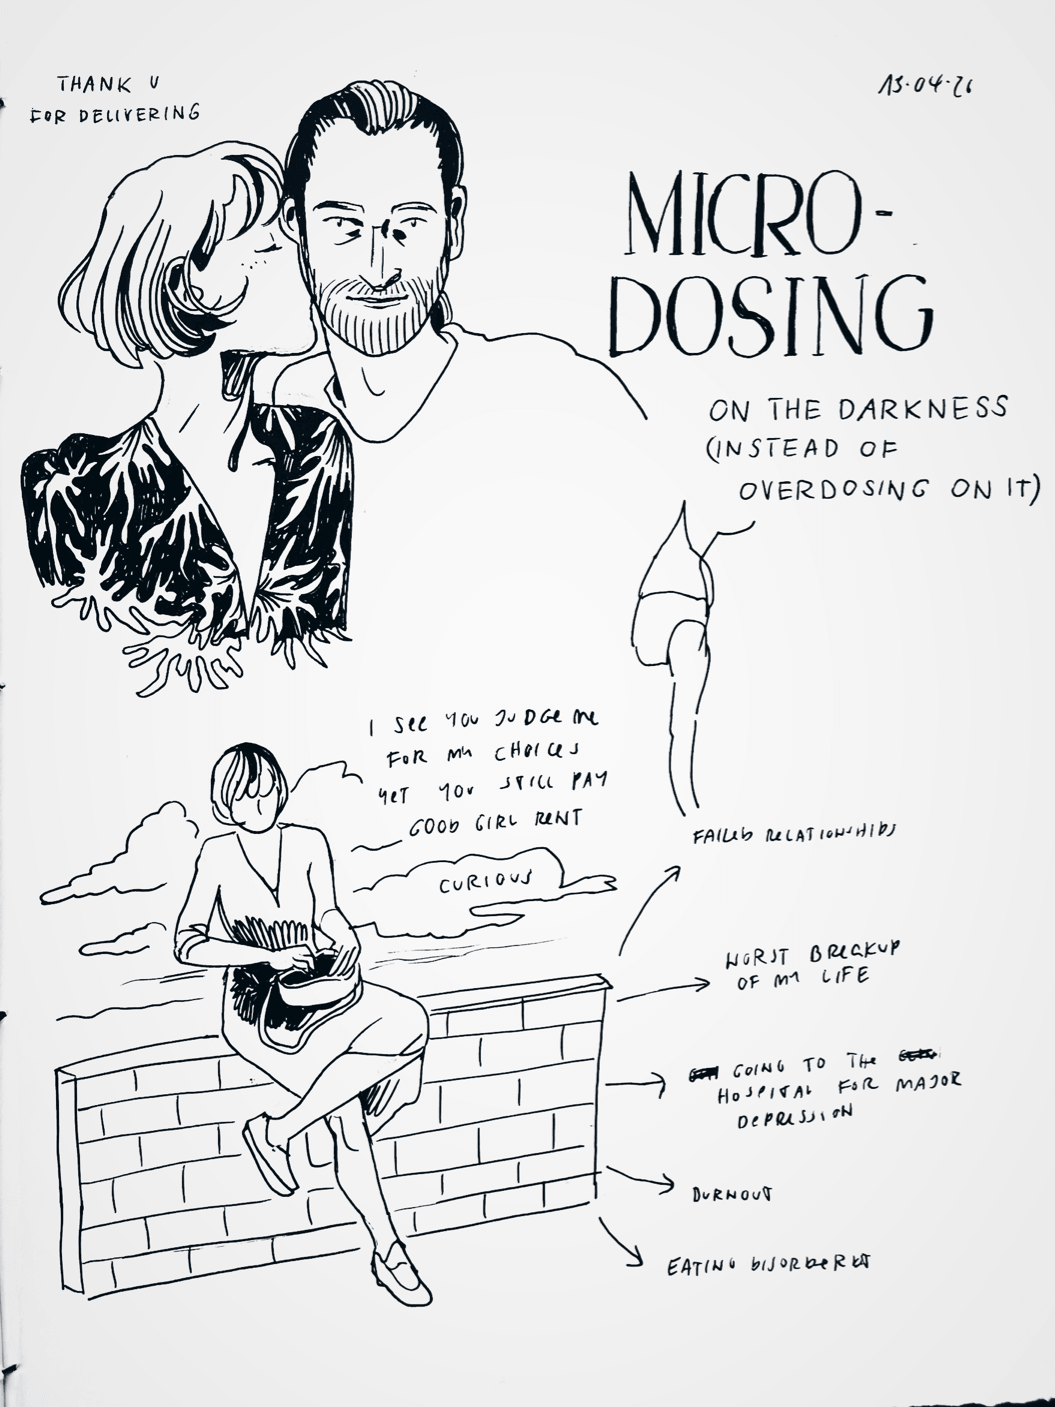 THANK U
FOR DELIVERING
13·04·26
MICRO-
DOSING
ON THE DARKNESS
(INSTEAD OF
OVERDOSING ON IT)
I SEE YOU JUDGE ME
FOR MY CHOICES
YET YOU STILL PAY
GOOD GIRL RENT
CURIOUS
FAILED RELATIONSHIPS
WORST BREAKUP
OF MY LIFE
GOING TO THE
HOSPITAL FOR MAJOR
DEPRESSION
BURNOUT
EATING